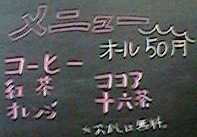 メニュー
オール50円
コーヒー
紅茶
オレンジ
ココア
十六茶
*おかしは無料